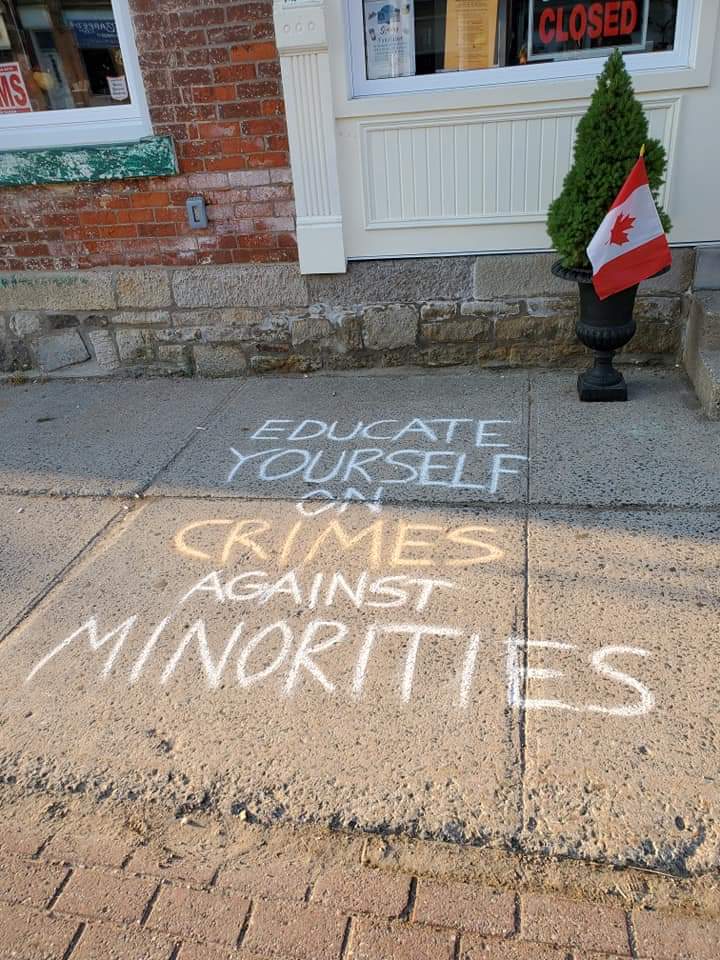 CLOSED
MS
EDUCATE
YOURSELF
ON
CRIMES
AGAINST
MINORITIES